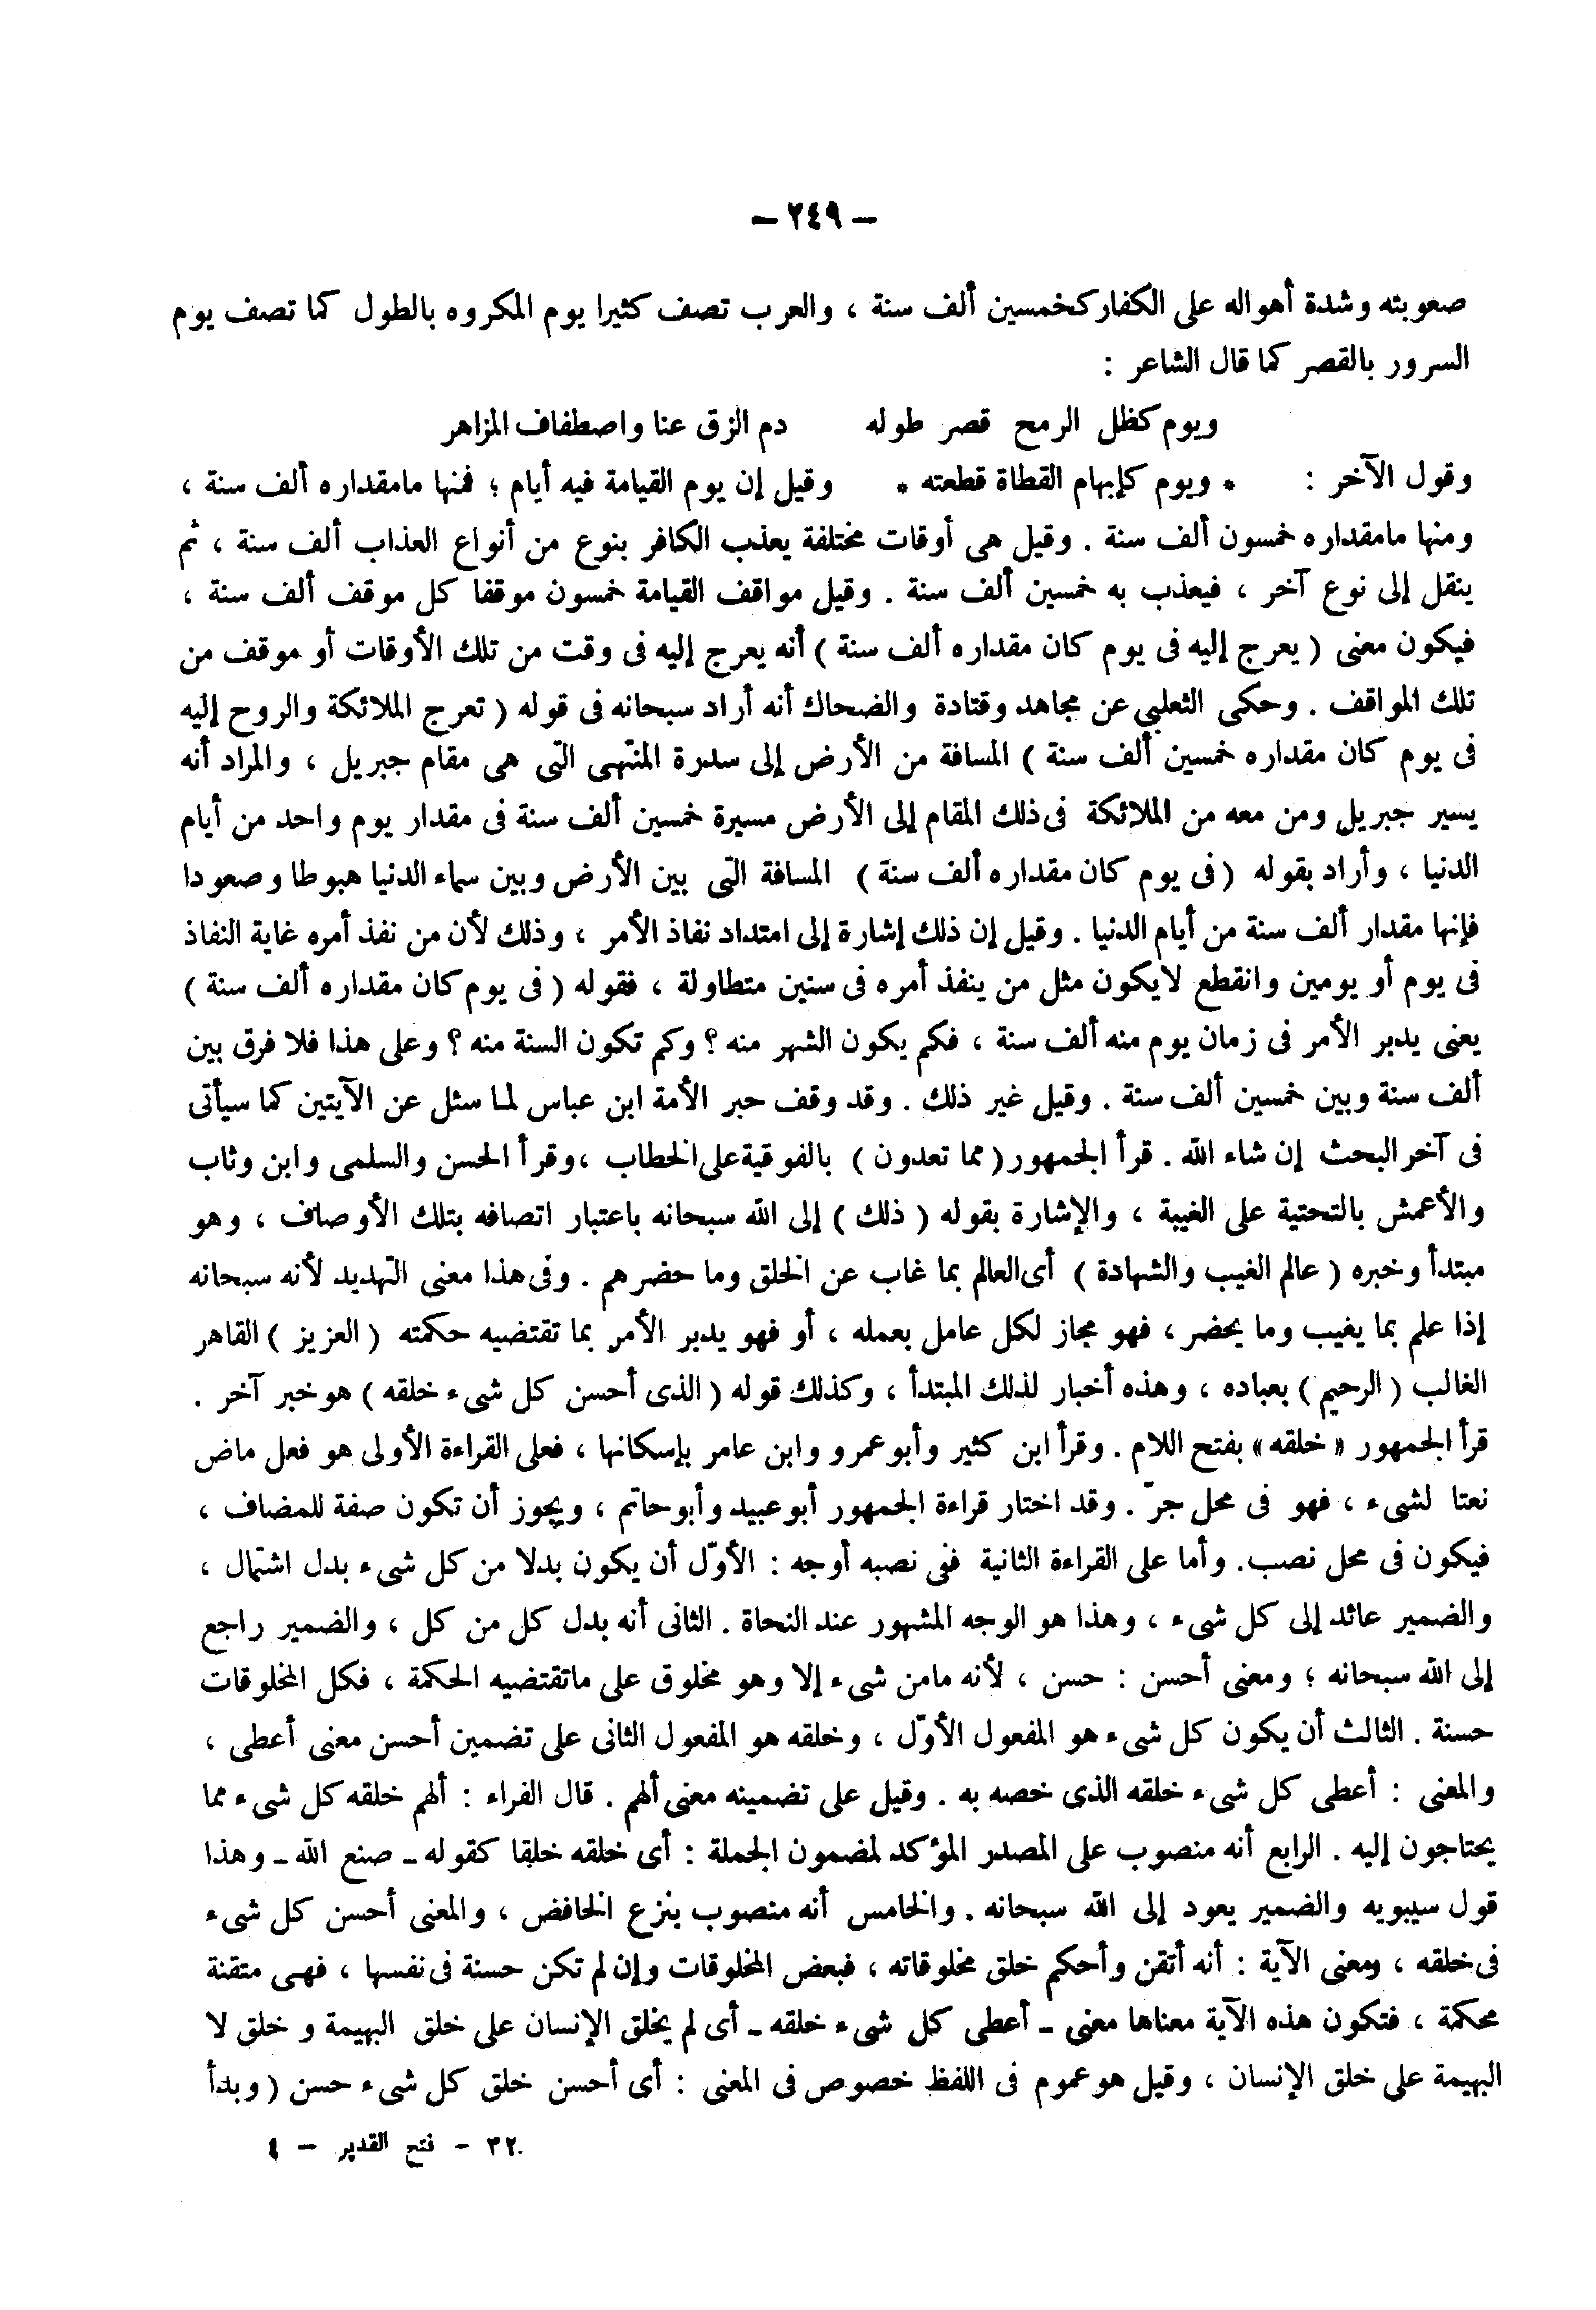 – ٢٤٩ –
صعوبته وشدة أهواله على الكفار كخمسين ألف سنة ، والعرب تصف كثيرا يوم المكروه بالطول كما تصف يوم
السرور بالقصر كما قال الشاعر :
ويوم كظل الرمح قصر طوله دم الزق عنا واصطفاف المزاهر
وقول الآخر : * ويوم كإبهام القطاة قطعته * وقيل إن يوم القيامة فيه أيام ؛ فمنها مامقداره ألف سنة ،
ومنها مامقداره خمسون ألف سنة . وقيل هى أوقات مختلفة يعذب الكافر بنوع من أنواع العذاب ألف سنة ، ثم
ينقل إلى نوع آخر ، فيعذب به خمسين ألف سنة . وقيل مواقف القيامة خمسون موقفا كل موقف ألف سنة ،
فيكون معنى ( يعرج إليه فى يوم كان مقداره ألف سنة ) أنه يعرج إليه فى وقت من تلك الأوقات أو موقف من
تلك المواقف . وحكى الثعلبي عن مجاهد وقتادة والضحاك أنه أراد سبحانه فى قوله ( تعرج الملائكة والروح إليه
فى يوم كان مقداره خمسين ألف سنة ) المسافة من الأرض إلى سدرة المنتهى التى هى مقام جبريل ، والمراد أنه
يسير جبريل ومن معه من الملائكة فى ذلك المقام إلى الأرض مسيرة خمسين ألف سنة فى مقدار يوم واحد من أيام
الدنيا ، وأراد بقوله ( فى يوم كان مقداره ألف سنة ) المسافة التى بين الأرض وبين سماء الدنيا هبوطا وصعودا
فإنها مقدار ألف سنة من أيام الدنيا . وقيل إن ذلك إشارة إلى امتداد نفاذ الأمر ، وذلك لأن من نفذ أمره غاية النفاذ
فى يوم أو يومين وانقطع لايكون مثل من ينفذ أمره فى سنين متطاولة ، فقوله ( فى يوم كان مقداره ألف سنة )
يعنى يدبر الأمر فى زمان يوم منه ألف سنة ، فكم يكون الشهر منه ؟ وكم تكون السنة منه ؟ وعلى هذا فلا فرق بين
ألف سنة وبين خمسين ألف سنة . وقيل غير ذلك . وقد وقف حبر الأمة ابن عباس لما سئل عن الآيتين كما سيأتى
فى آخر البحث إن شاء الله . قرأ الجمهور ( مما تعدون ) بالفوقية على الخطاب ، وقرأ الحسن والسلمى وابن وثاب
والأعمش بالتحتية على الغيبة ، والإشارة بقوله ( ذلك ) إلى الله سبحانه باعتبار اتصافه بتلك الأوصاف ، وهو
مبتدأ وخبره ( عالم الغيب والشهادة ) أى العالم بما غاب عن الخلق وما حضرهم . وفى هذا معنى التهديد لأنه سبحانه
إذا علم بما يغيب وما يحضر ، فهو مجاز لكل عامل بعمله ، أو فهو يدبر الأمر بما تقتضيه حكمته ( العزيز ) القاهر
الغالب ( الرحيم ) بعباده ، وهذه أخبار لذلك المبتدأ ، وكذلك قوله ( الذى أحسن كل شىء خلقه ) هو خبر آخر .
قرأ الجمهور « خلقه » بفتح اللام . وقرأ ابن كثير وأبو عمرو وابن عامر بإسكانها ، فعلى القراءة الأولى هو فعل ماض
نعتا لشىء ، فهو فى محل جرّ . وقد اختار قراءة الجمهور أبو عبيد وأبو حاتم ، ويجوز أن تكون صفة للمضاف ،
فيكون فى محل نصب . وأما على القراءة الثانية ففى نصبه أوجه : الأوّل أن يكون بدلا من كل شىء بدل اشتمال ،
والضمير عائد إلى كل شىء ، وهذا هو الوجه المشهور عند النحاة . الثانى أنه بدل كل من كل ، والضمير راجع
إلى الله سبحانه ؛ ومعنى أحسن : حسن ، لأنه مامن شىء إلا وهو مخلوق على ماتقتضيه الحكمة ، فكل المخلوقات
حسنة . الثالث أن يكون كل شىء هو المفعول الأوّل ، وخلقه هو المفعول الثانى على تضمين أحسن معنى أعطى ،
والمعنى : أعطى كل شىء خلقه الذى خصه به . وقيل على تضمينه معنى ألهم . قال الفراء : ألهم خلقه كل شىء مما
يحتاجون إليه . الرابع أنه منصوب على المصدر المؤكد لمضمون الجملة : أى خلقه خلقا كقوله ـ صنع الله ـ وهذا
قول سيبويه والضمير يعود إلى الله سبحانه . والخامس أنه منصوب بنزع الخافض ، والمعنى أحسن كل شىء
فى خلقه ، ومعنى الآية : أنه أتقن وأحكم خلق مخلوقاته ، فبعض المخلوقات وإن لم تكن حسنة فى نفسها ، فهى متقنة
محكمة ، فتكون هذه الآية معناها معنى ـ أعطى كل شىء خلقه ـ أى لم يخلق الإنسان على خلق البهيمة و خلق لا
البهيمة على خلق الإنسان ، وقيل هو عموم فى اللفظ خصوص فى المعنى : أى أحسن خلق كل شىء حسن ( وبدأ
٣٢ – فتح القدير – ٤